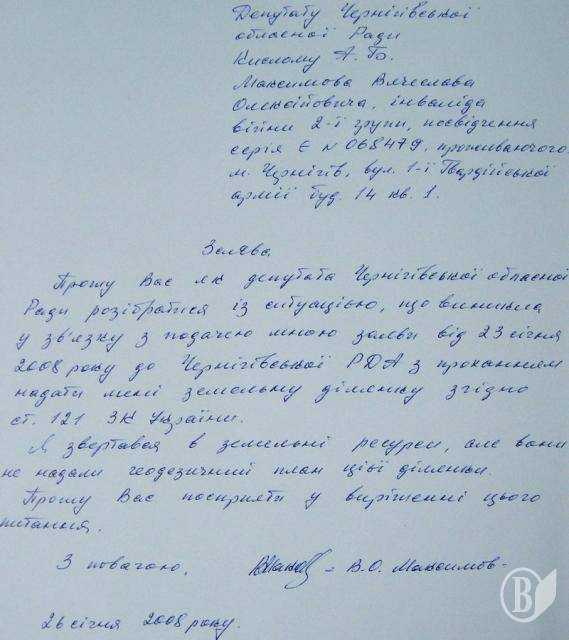 Депутату Чернігівської
обласної Ради
Кислому А. Б.
Максимова Вячеслава
Олексійовича, інваліда
війни 2-ї групи, посвідчення
серія Є N 068479, проживаючого
м. Чернігів, вул. 1-ї Гвардійської
армії буд. 14 кв. 1.
Заява
Прошу Вас як депутата Чернігівської обласної
Ради розібратися із ситуацією, що виникла
у зв'язку з подачею мною заяви від 23 січня
2008 року до Чернігівської РДА з проханням
надати мені земельну ділянку згідно
ст. 121 ЗК України.
Я звертався в земельні ресурси, але вони
не надали геодезичний план цієї ділянки.
Прошу Вас посприяти у вирішенні цього
питання.
З повагою, В.О. Максимов
26 січня 2008 року.
В